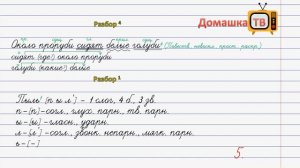 Домашка ТВ
Разбор 4
Около проруби сидят белые голуби. (Повеств., невоскл., прост., распр.)
сидят (где?) около проруби
голуби (какие?) белые
Разбор 1
Пыль [п ы л'] - 1 слог, 4 б., 3 зв.
п - [п] - согл., глух. парн., тв. парн.
ы - [ы] - гласн., ударн.
л - [л'] - согл., звонк. непарн., мягк. парн.
ь - [-]
5.